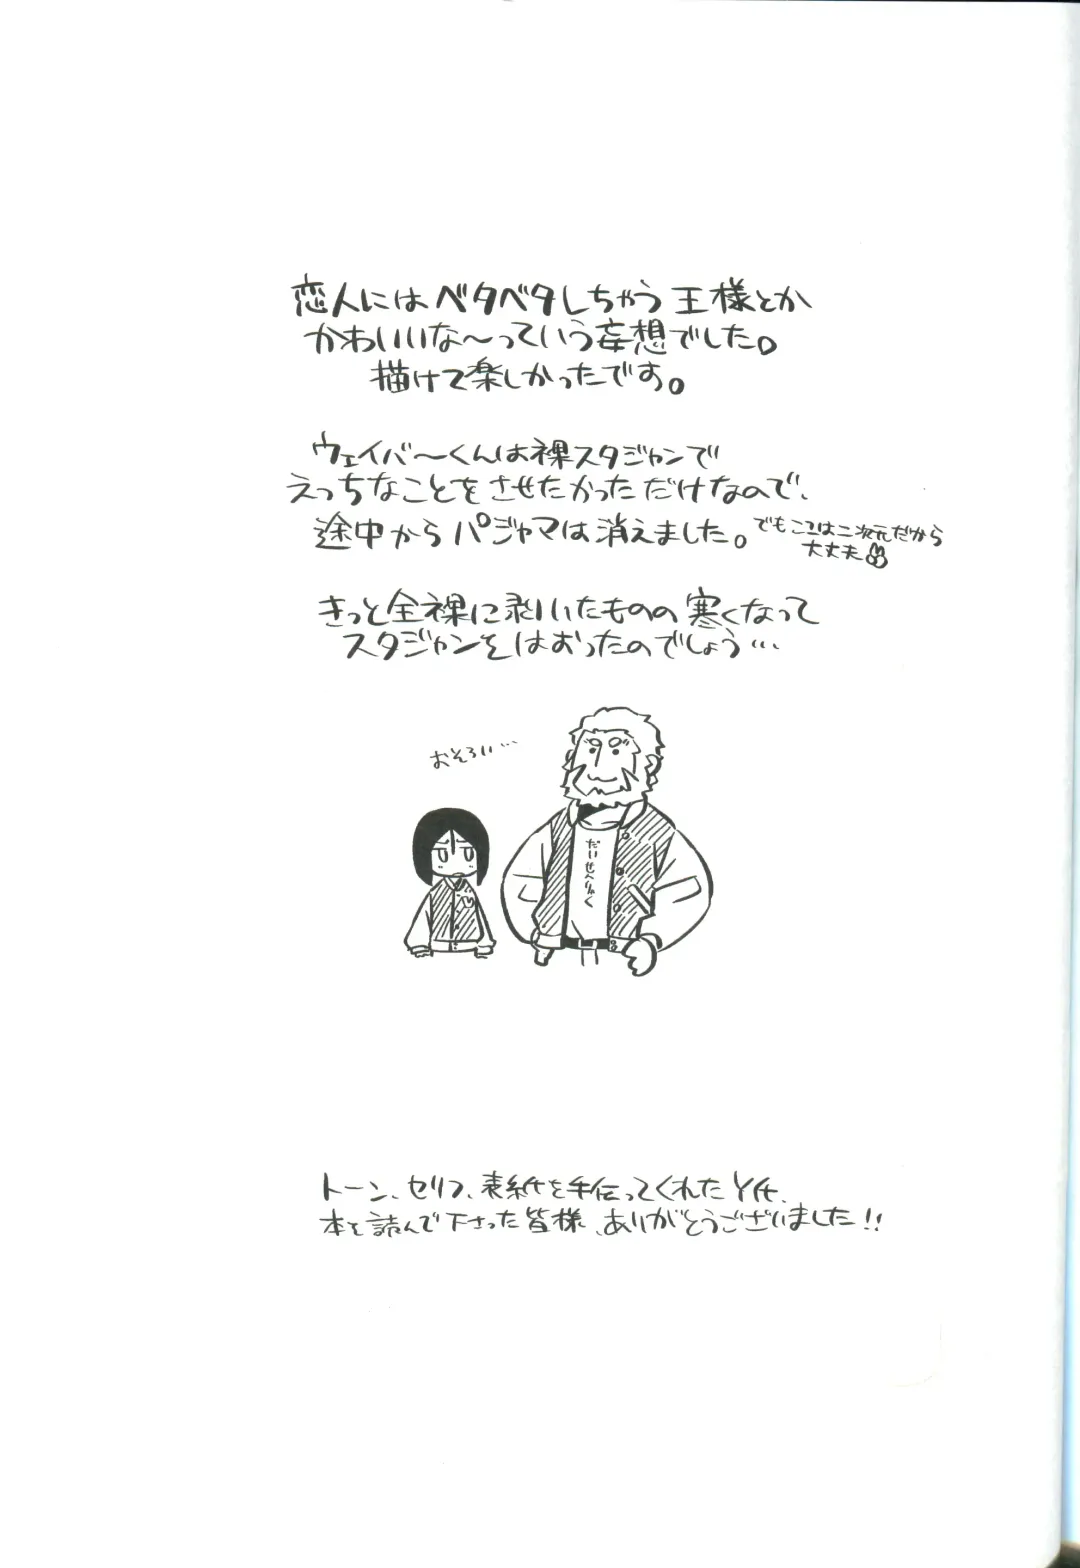 恋人にはベタベタしちゃう王様とか
かわいいな〜っていう妄想でした。
描けて楽しかったです。
ウェイバーくんは裸スタジャンで
えっちなことをさせたかっただけなので、
途中からパジャマは消えました。でもここは二次元だから
大丈夫
きっと全裸に剥いたものの寒くなって
スタジャンをはおったのでしょう…
おそろい…
だいせんりゃく
トーン、セリフ、表紙を手伝ってくれたY氏、
本を読んで下さった皆様、ありがとうございました!!